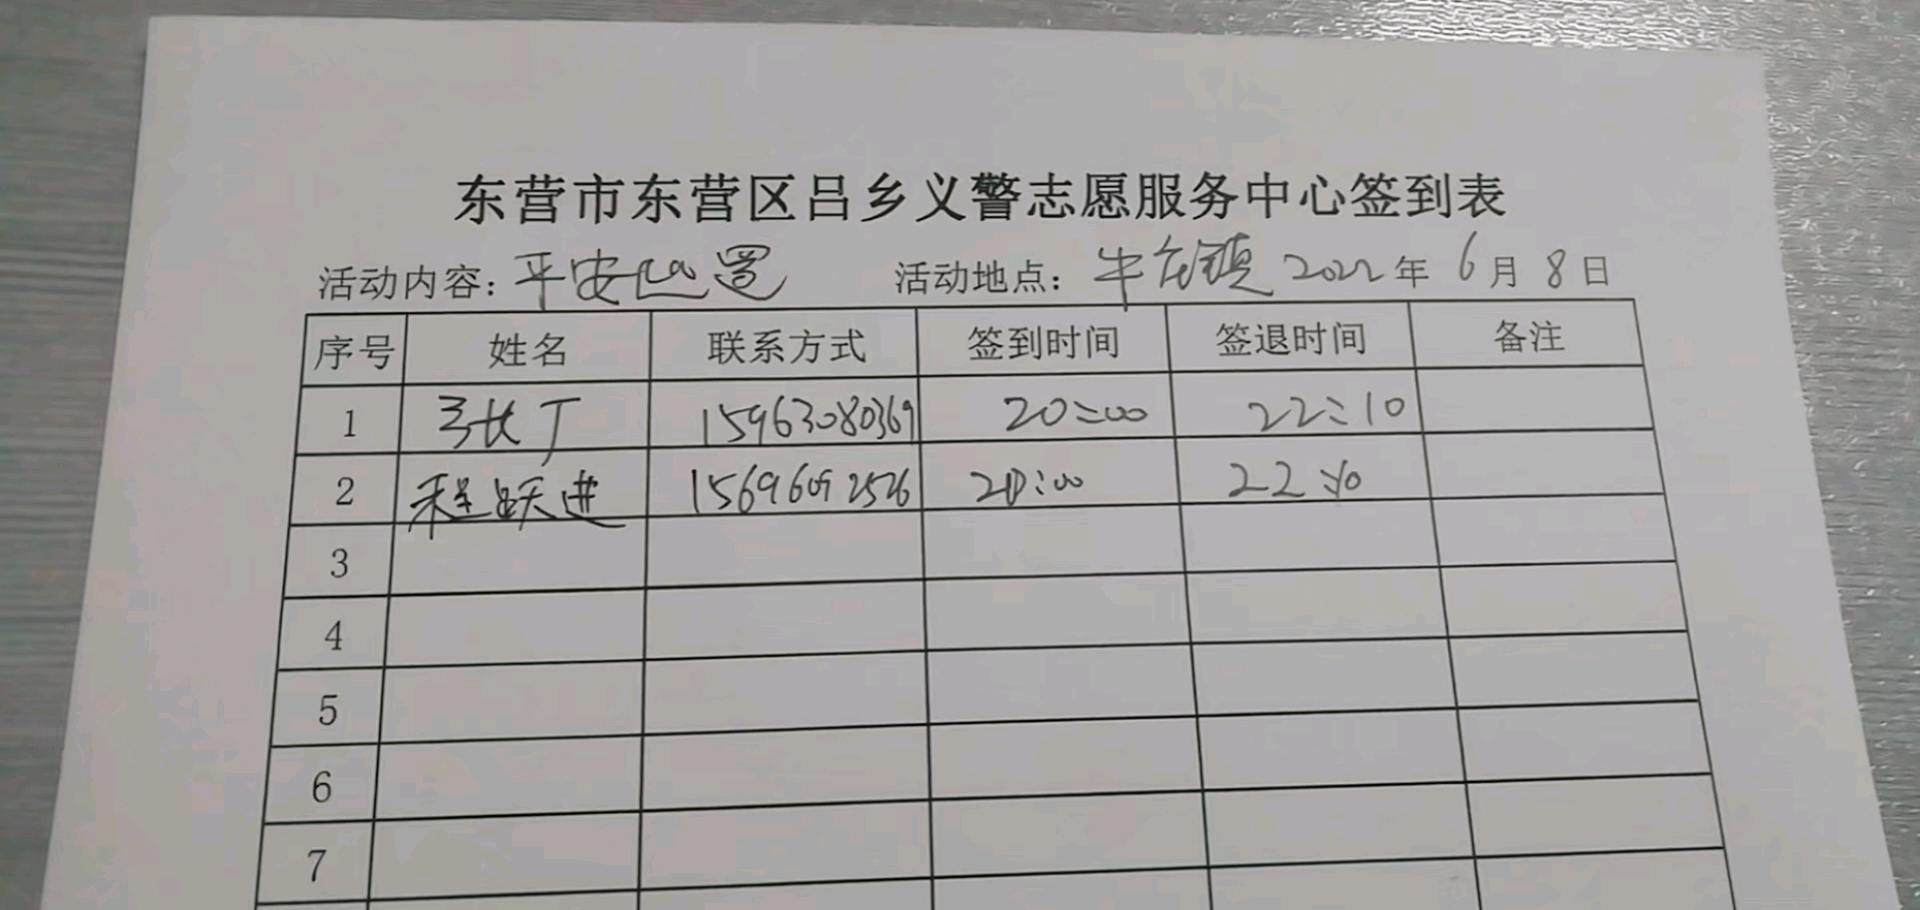 东营市东营区吕乡义警志愿服务中心签到表
活动内容：平安 活动地点：牛庄镇 2022年 6月 8日
序号 姓名 联系方式 签到时间 签退时间 备注
1 丁 15963080369 20:00 22:10
2 程跃进 15696092526 20:00 22:10
3
4
5
6
7